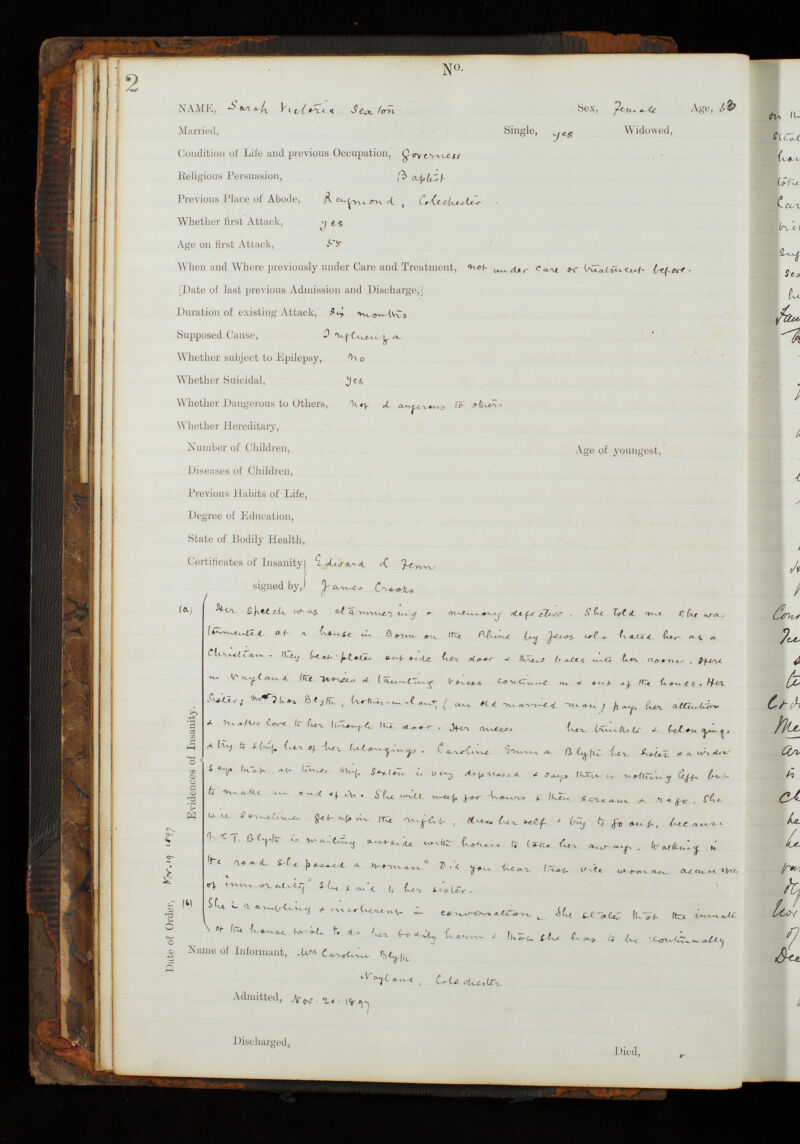 2
No.
NAME, Sarah Victoria Sexton Sex, Female Age,
Married, Single, yes Widowed,
Condition of Life and previous Occupation, Governess
Religious Persuasion, Baptist
Previous Place of Abode, Colechester
Whether first Attack, yes
Age on first Attack,
When and Where previously under Care and Treatment, not under care or treatment before.
[Date of last previous Admission and Discharge,]
Duration of existing Attack, Six months
Supposed Cause, Influenza
Whether subject to Epilepsy, No
Whether Suicidal, Yes
Whether Dangerous to Others, not dangerous to others
Whether Hereditary,
Number of Children, Age of youngest,
Diseases of Children,
Previous Habits of Life,
Degree of Education,
State of Bodily Health,
Certificates of Insanity Edward L Fenn
signed by, James Crooks
Evidences of Insanity.
(a) Her speech was stammering & memory defective. She told me she was
tormented at a house in Bonn on the Rhine by Jews who hated her as a
Christian. They beat plates outside her door & threw into her rooms. Here
in Nayland the noises & taunting voices continue in & out of the house. Her
Sister, Thos Blyth, brother-in-law, (an old married man) pays her attention
& makes love to her through the door. Her nieces her trinkets & belongings
& try to strip her of her belongings. Caroline Emma Blyth her sister & a widow
says that at times Miss Sexton is very depressed & says there is nothing left but
to make an end of it. She will weep for hours & then scream & rage. She
will sometimes get up in the night, dress herself & try to go out, because
T. Blyth is waiting outside with horses to take her away. Walking in
the road she passed a woman "Did you hear that vile woman accuse me
of immorality" she said to her sister.
(b) She is rambling & incoherent in conversation. She states that the inmates
of the house wish to do her bodily harm & that she has to be continually
Date of Order, Nov. 19 1897
Name of Informant, Mrs Caroline Blyth
Nayland, Colechester
Admitted, Nov. 20. 1897
Discharged,
Died,